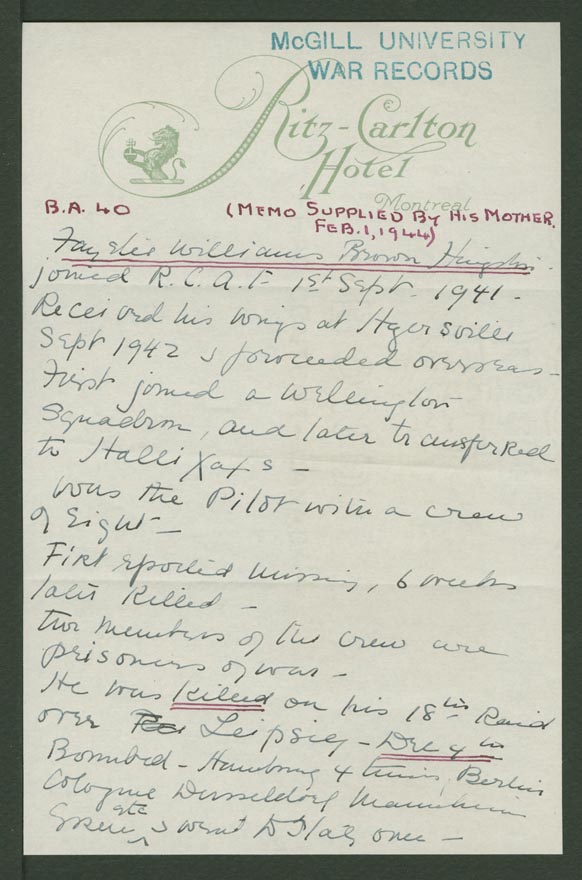 McGILL UNIVERSITY
WAR RECORDS
Ritz-Carlton
Hotel
Montreal
B.A. 40
(MEMO SUPPLIED BY HIS MOTHER.
FEB. 1, 1944)
Williams Brown Hingston
joined R.C.A.F. 1st Sept. 1941 -
Received his wings at Hagersville
Sept 1942 & proceeded overseas -
First joined a Wellington
Squadron, and later transferred
to Hallixaxs -
was the Pilot with a crew
of Eight -
First reported missing, 6 weeks
later killed -
two members of the crew are
prisoners of war -
He was killed on his 18th Raid
over Leipsig - Dec 4th
Bombed - Hamburg 4 times, Berlin
Cologne Dusseldorf Mannheim
Essen etc & went to Italy once -